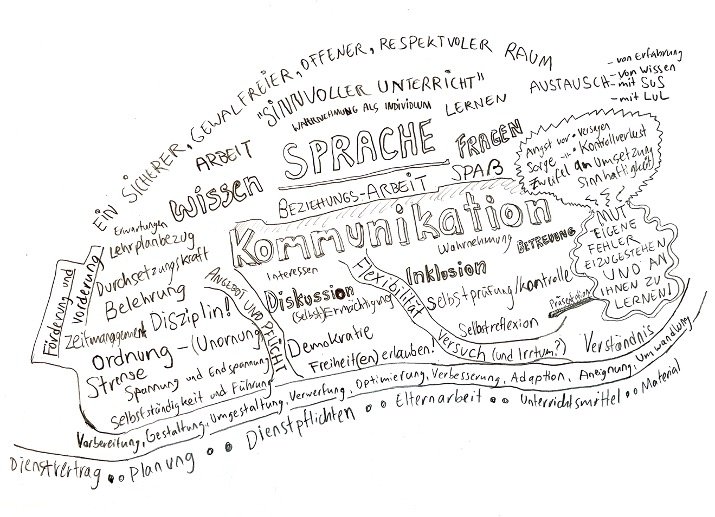 EIN SICHERER, GEWALFREIER, OFFENER, RESPEKTVOLER RAUM
"SINNVOLLER UNTERRICHT"
WAHRNEHMUNG ALS INDIVIDUUM
LERNEN
AUSTAUSCH
- von Erfahrung
- von Wissen
- mit SuS
- mit LuL
ARBEIT
SPRACHE
FRAGEN
Wissen
BEZIEHUNGS-ARBEIT
SPAß
Angst vor Versagen
Sorge -"- Kontrollverlust
Zweifel an Umsetzung
Sinnhaftigkeit
Kommunikation
MUT
EIGENE
FEHLER
EIZUGESTEHEN
UND AN
IHNEN ZU
LERNEN!
Erwartungen
Lehrplanbezug
Förderung und
Vorderung
Durchsetzungskraft
Belehrung
Zeitmanagement
Disziplin!
Ordnung - (Unornung)
Strense
Spannung und Endspannung
Selbstständigkeit und Führung
ANGEBOT UND PFLICHT
Interessen
Diskussion
(Selbst)Ermächtigung
Demokratie
Freiheit(en) erlauben!
Flexibilität
Wahrnehmung
BETREUUNG
Inklusion
Selbstprüfung/kontrolle
Präsentation
Selbstreflexion
Versuch (und Irrtum?)
Verständnis
Vorbereitung, Gestaltung, Umgestaltung, Verwerfung, Optimierung, Verbesserung, Adaption, Aneignung, Umwandlung
Dienstvertrag •• Planung •• Dienstpflichten •• Elternarbeit •• Unterrichtsmittel •• Material